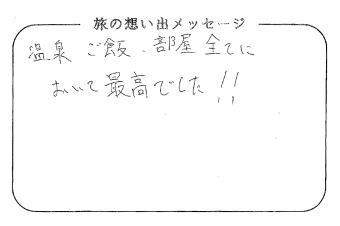 旅の想い出メッセージ
温泉 ご飯、部屋 全てに
おいて最高でした!!